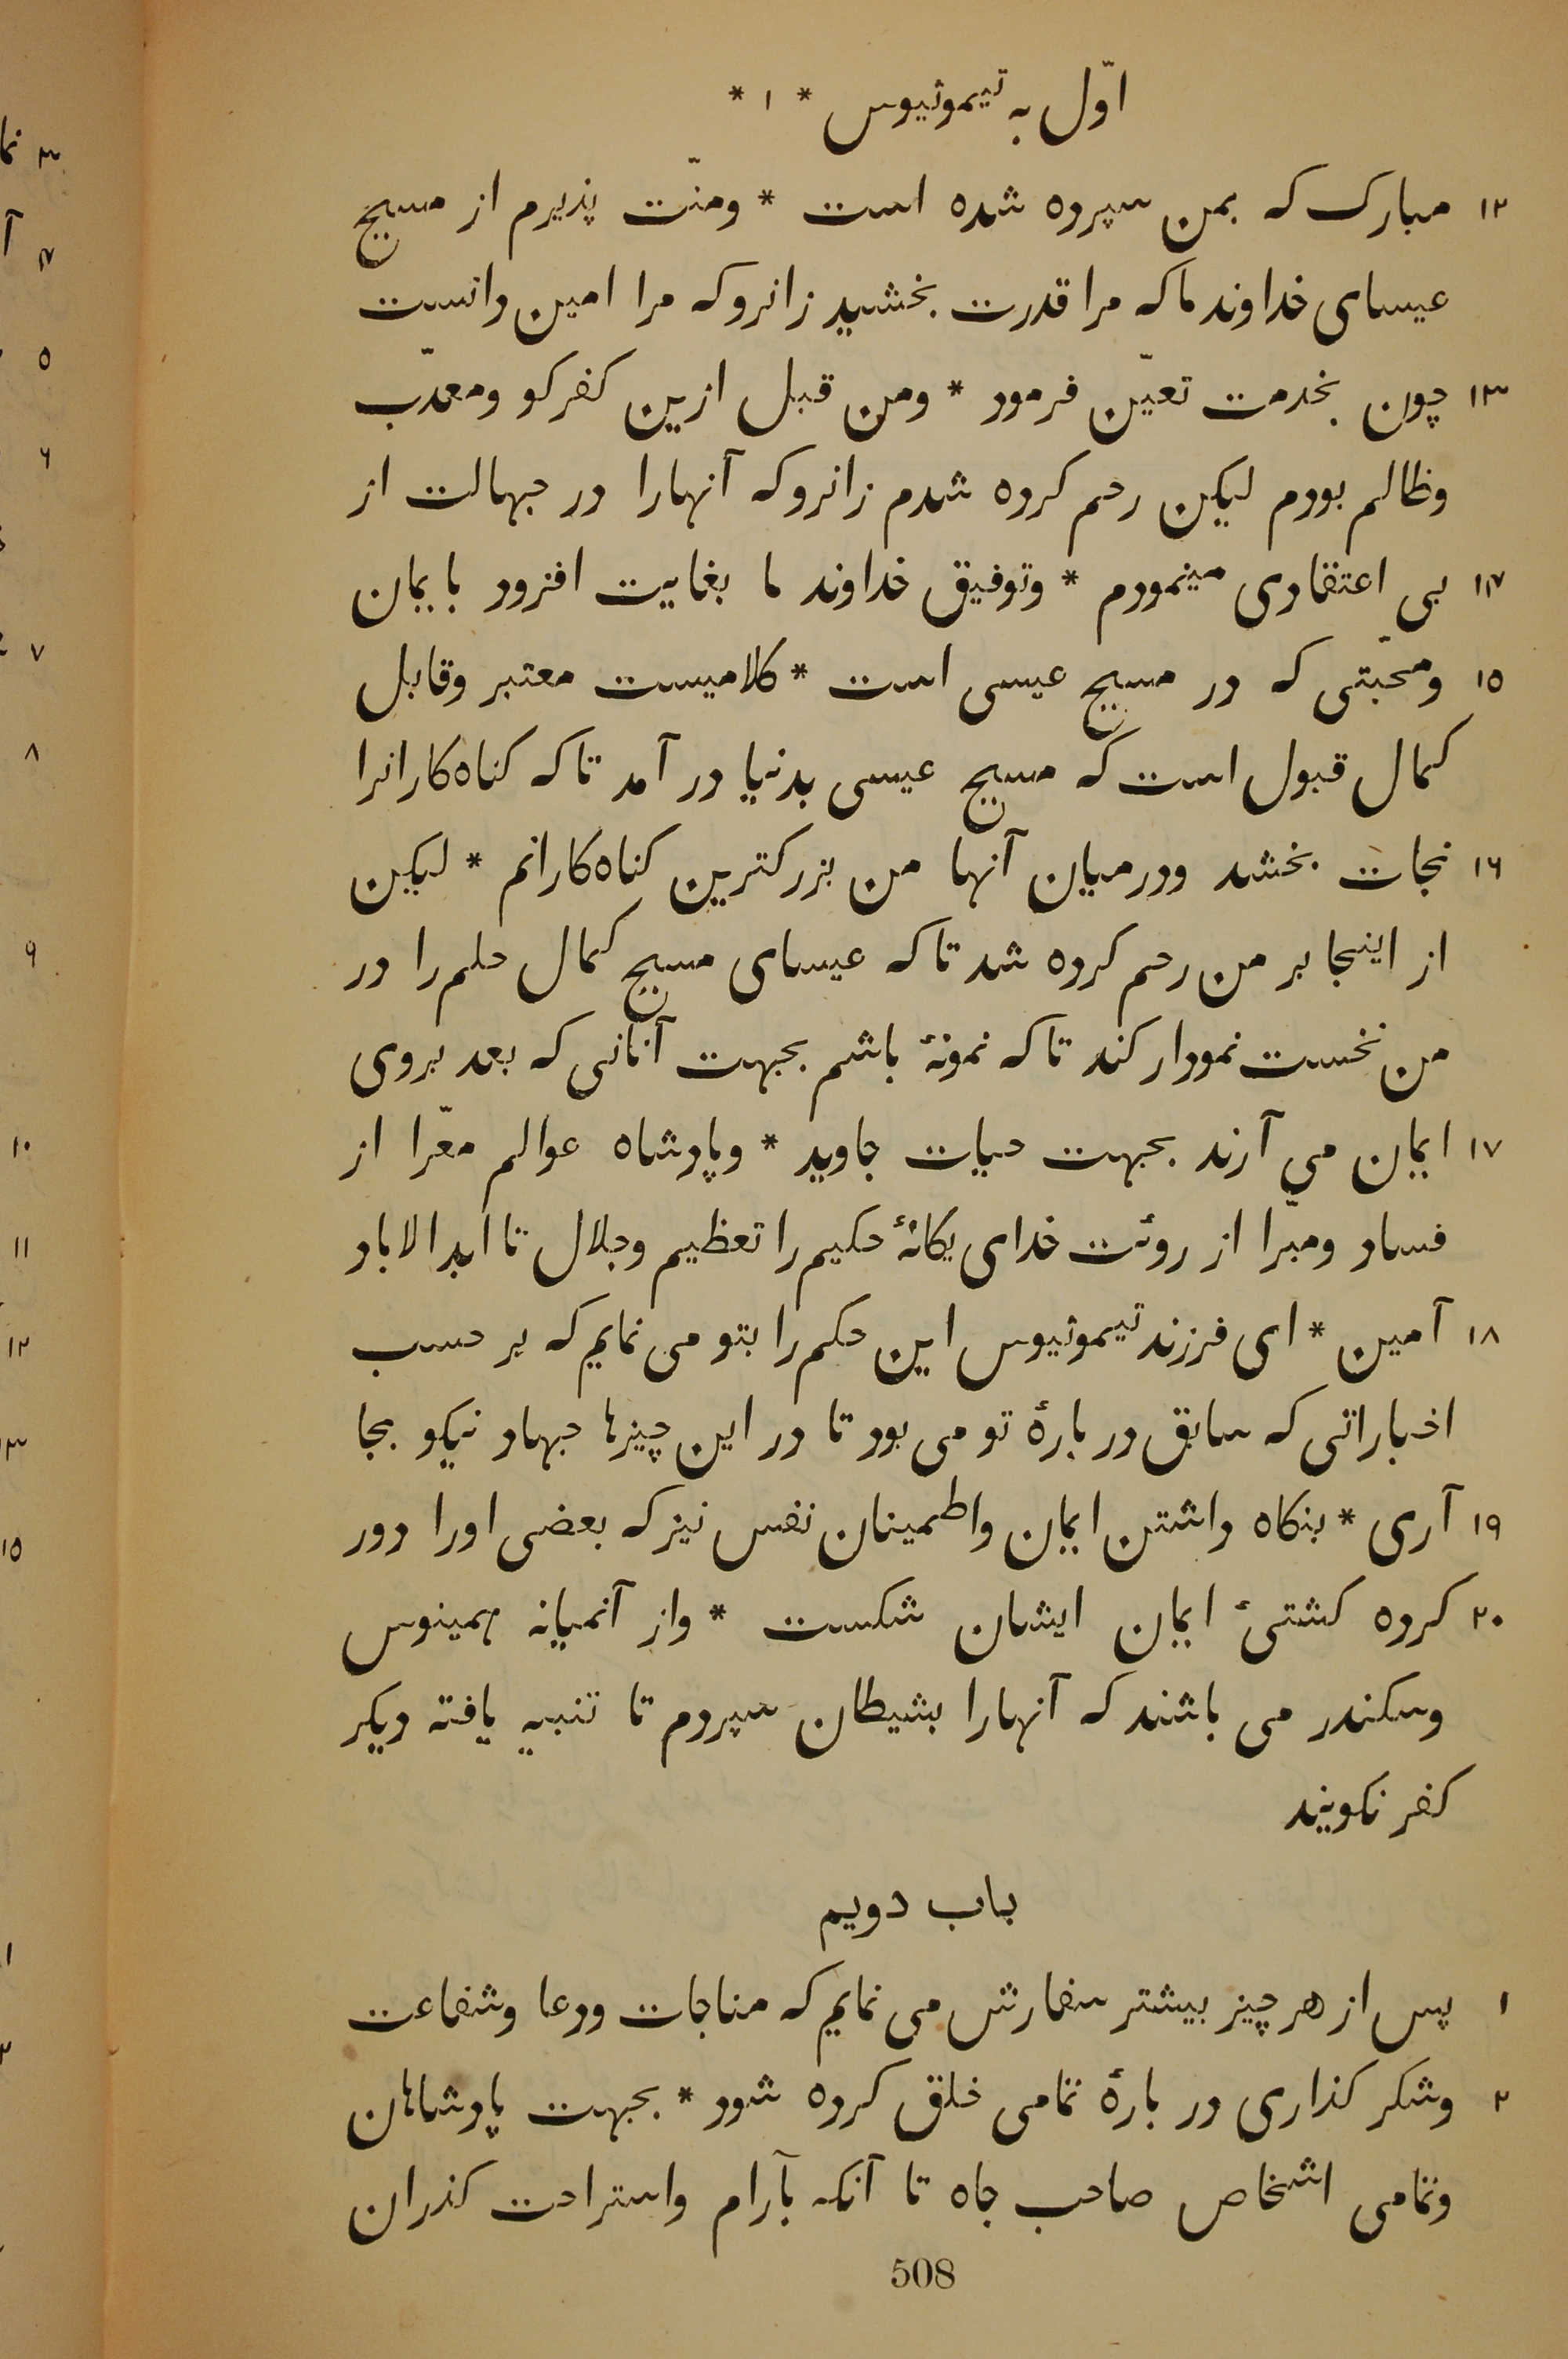 اوّل به تیموثیوس * ۱ *
۱۲ مبارک که بمن سپرده شده است * ومنّت پذیرم از مسیح
عیسای خداوند ما که مرا قدرت بخشید زانرو که مرا امین دانست
۱۳ چون بخدمت تعیّن فرمود * ومن قبل ازین کفر کو ومعذّب
وظالم بودم لیکن رحم کرده شدم زانرو که آنهارا در جهالت از
۱۴ بی اعتقادی مینمودم * وتوفیق خداوند ما بغایت افزود بایمان
۱۵ ومحبّتی که در مسیح عیسی است * کلامیست معتبر وقابل
کمال قبول است که مسیح عیسی بدنیا در آمد تا که کناه‌کارانرا
۱۶ نجات بخشد ودرمیان آنها من بزرکترین کناه‌کارانم * لیکن
از اینجا بر من رحم کرده شد تا که عیسای مسیح کمال حلم را در
من نخست نمودار کند تا که نمونهٔ باشم بجهت آنانی که بعد بروی
۱۷ ایمان می آرند بجهت حیات جاوید * وپادشاه عوالم معّرا از
فساد ومبّرا از روئت خدای یکانهٔ حکیم را تعظیم وجلال تا ابد الاباد
۱۸ آمین * ای فرزند تیموثیوس این حکم را بتو می نمایم که بر حسب
اخباراتی که سابق در بارهٔ تو می بود تا در این چیزها جهاد نیکو بجا
۱۹ آری * بنکاه داشتن ایمان واطمینان نفس نیز که بعضی اورا دور
۲۰ کرده کشتیٔ ایمان ایشان شکست * واز آنمیانه همینوس
وسکندر می باشند که آنهارا بشیطان سپردم تا تنبیه یافته دیکر
کفر نکویند
باب دویم
۱ پس از هر چیز بیشتر سفارش می نمایم که مناجات ودعا وشفاعت
۲ وشکر کذاری در بارهٔ تمامی خلق کرده شود * بجهت پادشاهان
وتمامی اشخاص صاحب جاه تا آنکه بآرام واستراحت کذران
508